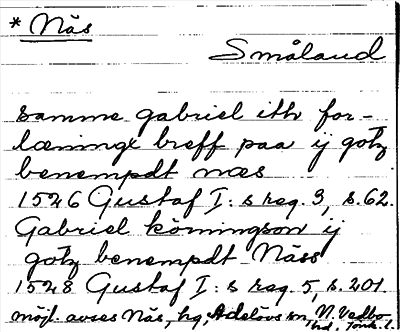 * Näs
Småland
samme gabriel ith for-
læninge breff paa ij gotz
benempdt næs
1526 Gustaf I: s reg. 3, s. 62.
Gabriel köningson ij
gotz benempdt Näss
1528 Gustaf I: s reg. 5, s. 201.
möjl. avses Näs, hg, Adelövs sn, N. Vedbo
hd, Jönk. l.